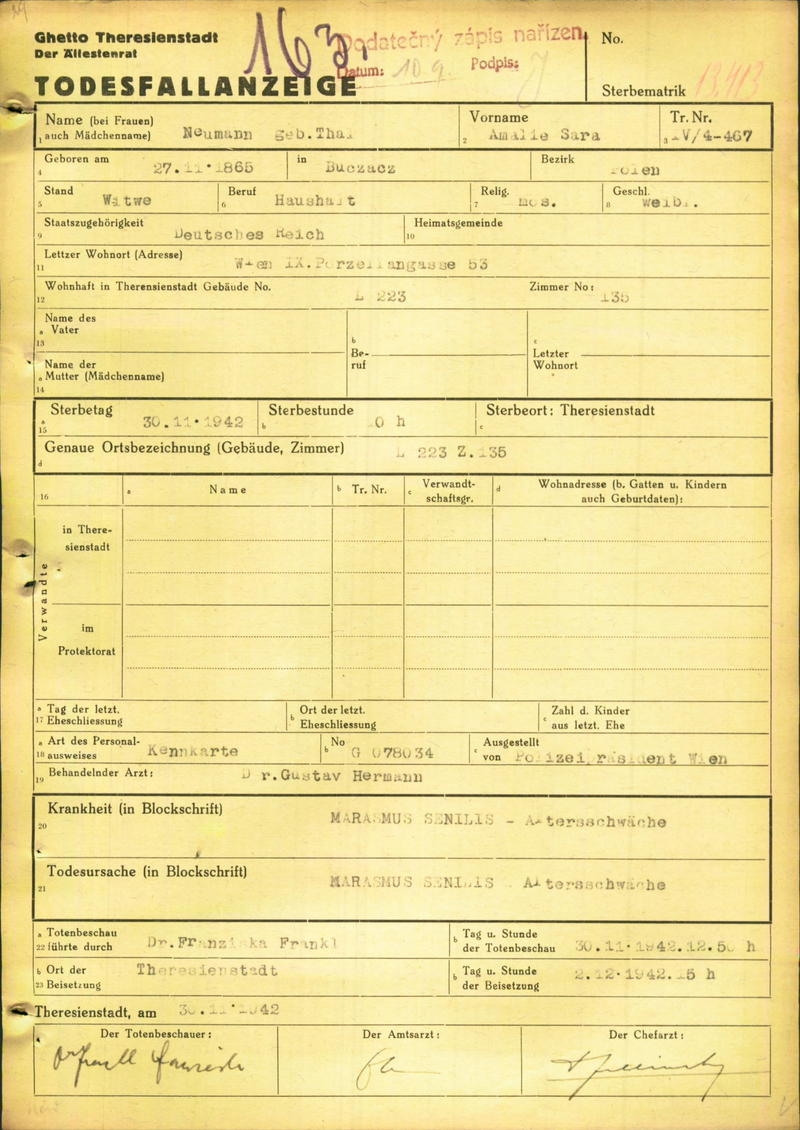 Ghetto Theresienstadt
Der Ältestenrat
TODESFALLANZEIGE
163
Dodatečný zápis nařízen
Datum: 10 9. Podpis:
No.
Sterbematrik 13.413
Name (bei Frauen) Neumann geb.
1 auch Mädchenname)
Vorname
2 Amalie Sara
Tr. Nr.
3 V/4-467
Geboren am
4 27.11.1865
in Buczacz
Bezirk
Polen
Stand
5 Witwe
Beruf
6 Haushalt
Relig.
7 mos.
Geschl.
8 weibl.
Staatszugehörigkeit
9 Deutsches Reich
Heimatsgemeinde
10
Lettzer Wohnort (Adresse)
11 Wien IX.Porzellangasse 53
Wohnhaft in Therensienstadt Gebäude No.
12 L 223
Zimmer No: 135
Name des
a Vater
13
Name der
a Mutter (Mädchenname)
14
b
Be-
ruf
c
Letzter
Wohnort
Sterbetag
a
15 30.11.1942
Sterbestunde
b 0 h
Sterbeort: Theresienstadt
c
Genaue Ortsbezeichnung (Gebäude, Zimmer) L 223 Z.135
d
16
a Name
b Tr. Nr.
c Verwandt-
schaftsgr.
d Wohnadresse (b. Gatten u. Kindern
auch Geburtdaten):
Verwandte
in There-
sienstadt
im
Protektorat
a Tag der letzt.
17 Eheschliessung
b Ort der letzt.
Eheschliessung
c Zahl d. Kinder
aus letzt. Ehe
a Art des Personal-
18 ausweises Kennkarte
b No G 078034
c Ausgestellt
von Polizeipräsident Wien
19 Behandelnder Arzt: Dr.Gustav Hermann
Krankheit (in Blockschrift)
20
MARASMUS SENILIS - Altersschwäche
Todesursache (in Blockschrift)
21
MARASMUS SENILIS - Altersschwäche
a Totenbeschau
22 führte durch Dr.Franziska Frankl
b Tag u. Stunde
der Totenbeschau 30.11.1942.12.50 h
b Ort der
23 Beisetzung Theresienstadt
b Tag u. Stunde
der Beisetzung 2.12.1942. 15 h
Theresienstadt, am 30.11.1942
Der Totenbeschauer:
Der Amtsarzt:
Der Chefarzt: